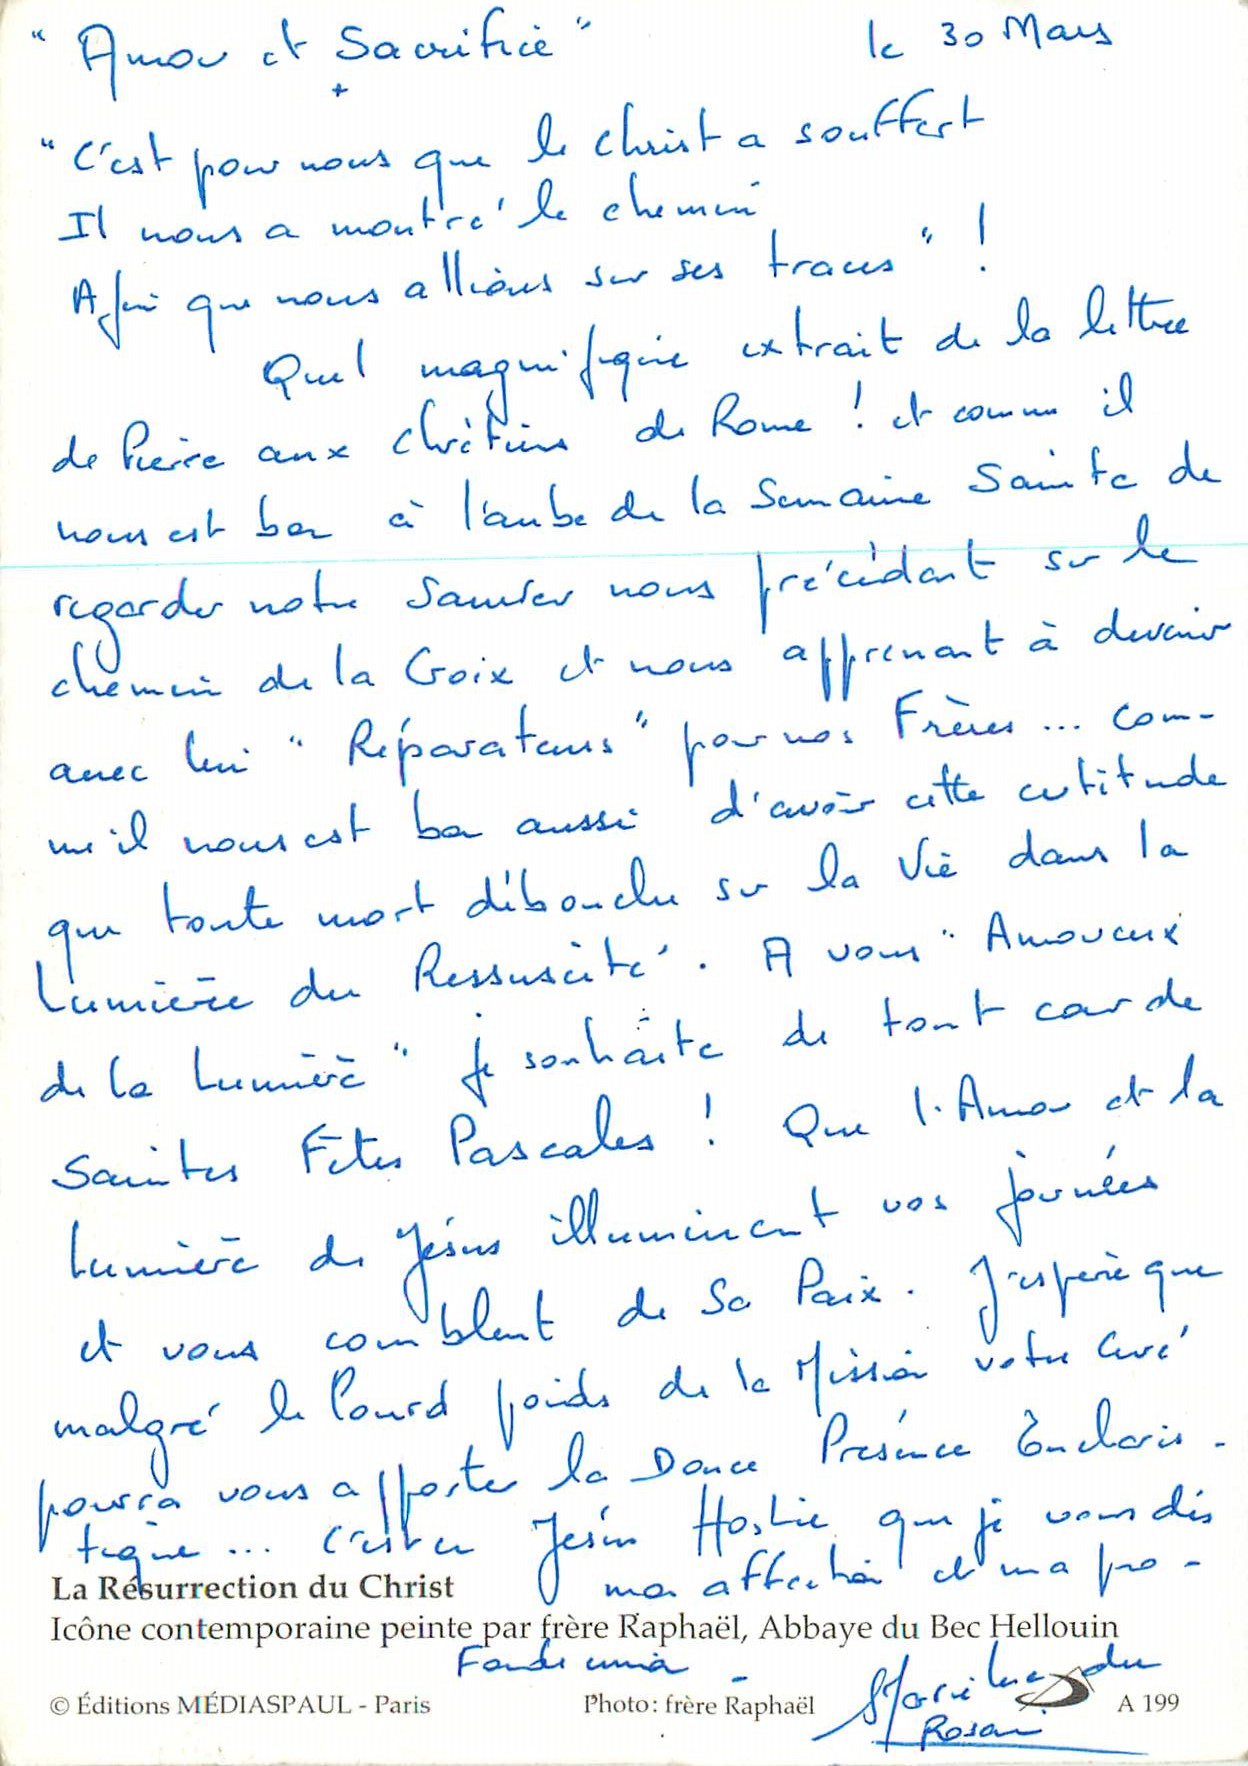 " Amour et Sacrifice "
le 30 Mars
+
" C'est pour nous que le Christ a souffert
Il nous a montré le chemin
Afin que nous allions sur ses traces " !
Quel magnifique extrait de la lettre
de Pierre aux chrétiens de Rome ! et comme il
nous est bon à l'aube de la Semaine Sainte de
regarder notre Sauveur nous précédant sur le
chemin de la Croix et nous apprenant à devenir
avec lui " Réparateurs " pour nos Frères ... com-
me il nous est bon aussi d'avoir cette certitude
que toute mort débouche sur la Vie dans la
Lumière du Ressuscité . A vous " Amoureux
de la Lumière " je souhaite de tout cœur de
Saintes Fêtes Pascales ! Que l'Amour et la
Lumière de Jésus illuminent vos journées
et vous comblent de Sa Paix . J'espère que
malgré le lourd poids de la Mission votre Curé
pourra vous apporter la Douce Présence Eucharis -
tique ... C'est en Jésus Hostie que je vous dis
mon affection et ma pro -
La Résurrection du Christ
Icône contemporaine peinte par frère Raphaël, Abbaye du Bec Hellouin
fonde union -
Sr Marie Luce du
Rosaire
© Éditions MÉDIASPAUL - Paris
Photo: frère Raphaël
A 199